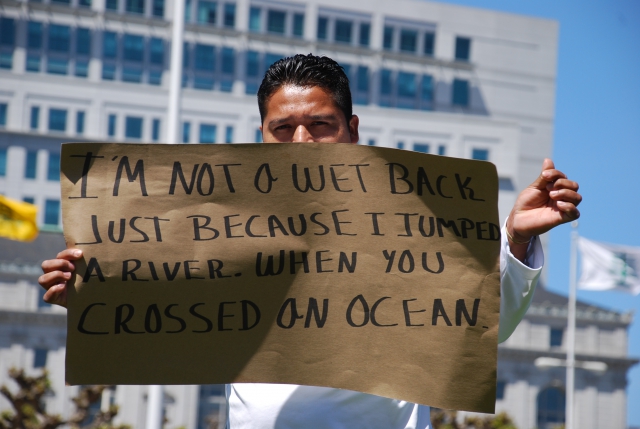 I'M NOT A WET BACK
JUST BECAUSE I JUMPED
A RIVER. WHEN YOU
CROSSED AN OCEAN.